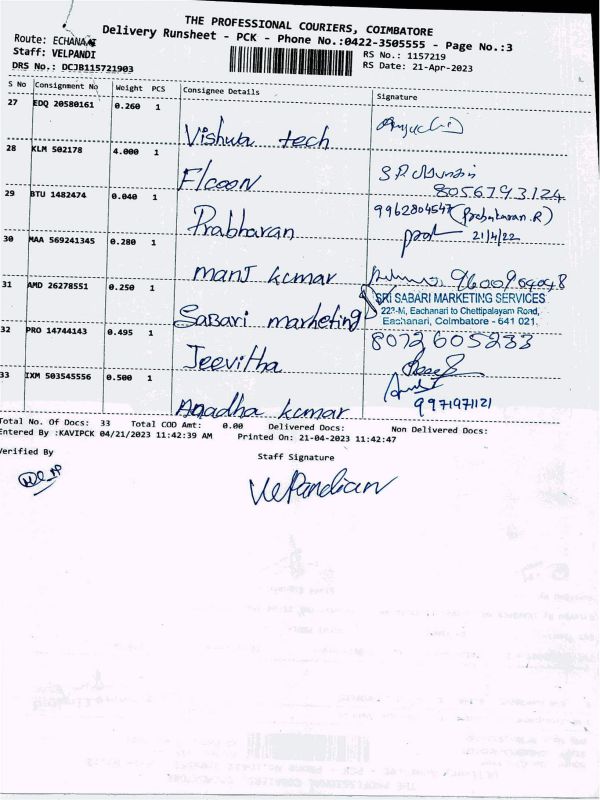 THE PROFESSIONAL COURIERS, COIMBATORE
Delivery Runsheet - PCK - Phone No.:0422-3505555 - Page No.:3
Route: ECHANA
Staff: VELPANDI
DRS No.: DCJB115721903
RS No.: 1157219
RS Date: 21-Apr-2023
S No Consignment No Weight PCS Consignee Details Signature
27 EDQ 20580161 0.260 1 Vishwa tech
28 KLM 502178 4.000 1 Flcoon
8056793124
29 BTU 1482474 0.040 1 Prabharan 9962804547 (Prabakaran.R)
21/4/22
30 MAA 569241345 0.280 1 manj kumar
31 AMD 26278551 0.250 1 Sabari marketing
SRI SABARI MARKETING SERVICES
223-M, Eachanari to Chettipalayam Road,
Eachanari, Coimbatore - 641 021.
32 PRO 14744143 0.495 1 Jeevitha 8072605233
33 IXM 503545556 0.500 1 Anadha kumar
9971971121
Total No. Of Docs: 33 Total COD Amt: 0.00 Delivered Docs: Non Delivered Docs:
Entered By :KAVIPCK 04/21/2023 11:42:39 AM Printed On: 21-04-2023 11:42:47
Verified By Staff Signature
VelPandian